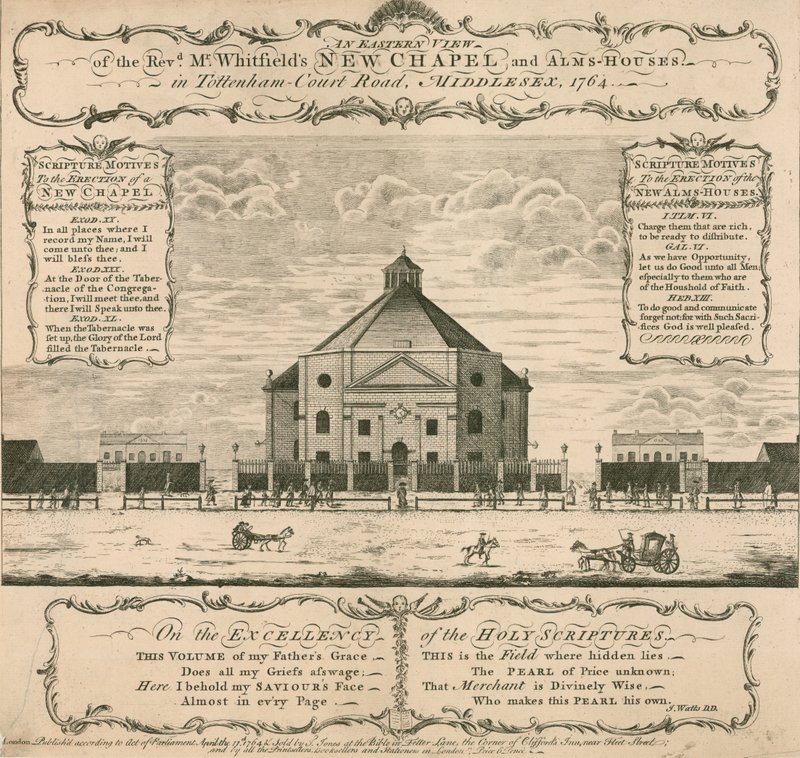 AN EASTERN VIEW
of the Revd. Mr. Whitfield's NEW CHAPEL, and ALMS-HOUSES.
in Tottenham-Court Road, MIDDLESEX, 1764.
SCRIPTURE MOTIVES
To the ERECTION of a
NEW CHAPEL
EXOD. XX.
In all places where I
record my Name, I will
come unto thee; and I
will bleſs thee.
EXOD XXX.
At the Door of the Taber-
nacle of the Congrega-
tion, I will meet thee, and
there I will Speak unto thee.
EXOD. XL.
When the Tabernacle was
ſet up, the Glory of the Lord
filled the Tabernacle.
SCRIPTURE MOTIVES
To the ERECTION of the
NEW ALMS-HOUSES.
I. TIM. VI.
Charge them that are rich,
to be ready to diſtribute.
GAL. VI.
As we have Opportunity,
let us do Good unto all Men;
eſpecially to them who are
of the Houshold of Faith.
HEB. XIII.
To do good and communicate
forget not: for with Such Sacri-
fices God is well pleaſed.
On the EXCELLENCY of the HOLY SCRIPTURES
THIS VOLUME of my Father's Grace
Does all my Griefs aſswage;
Here I behold my SAVIOUR'S Face
Almost in ev'ry Page.
THIS is the Field where hidden lies
The PEARL of Price unknown;
That Merchant is Divinely Wise,
Who makes this PEARL his own.
I. Watts D.D.
London Publish'd according to Act of Parliament April the 17th. 1764 & Sold by J. Jones at the Bible in Fetter Lane, the Corner of Clifford's Inn, near Fleet Street;
and by all the Printsellers, Booksellers and Stationers in London. Price 6 Pence.